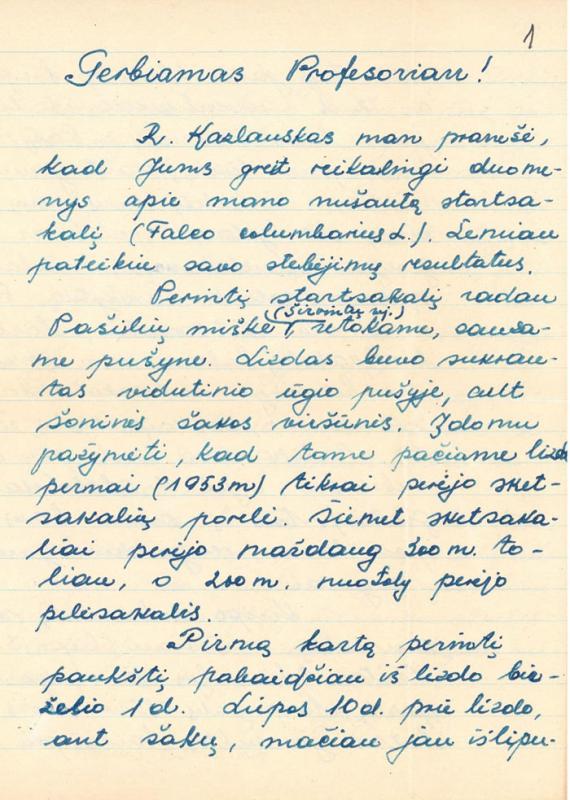 1
Gerbiamas Profesoriau!
R. Kazlauskas man pranešė,
kad Jums greit reikalingi duome-
nys apie mano nušautą startsa-
kalį (Falco columbarius L.). Žemiau
pateikiu savo stebėjimų resultatus.
Perintį startsakalį radau
(Širvintų rj.)
Pašilių miške, retokame, sausa-
me pušyne. Lizdas buvo sukrau-
tas vidutinio ūgio pušyje, ant
šoninės šakos viršūnės. Įdomu
pažymėti, kad tame pačiame lizde
pernai (1953m) tikrai perėjo sket-
sakalių porelė. Šiemet sketsaka-
liai perėjo maždaug 300 m. to-
liau, o 200 m. nuotoly perėjo
pelėsakalis.
Pirmą kartą perintį
paukštį pabaidžiau iš lizdo bir-
želio 1 d. Liepos 10 d. prie lizdo,
ant šakų, mačiau jau išlipu-